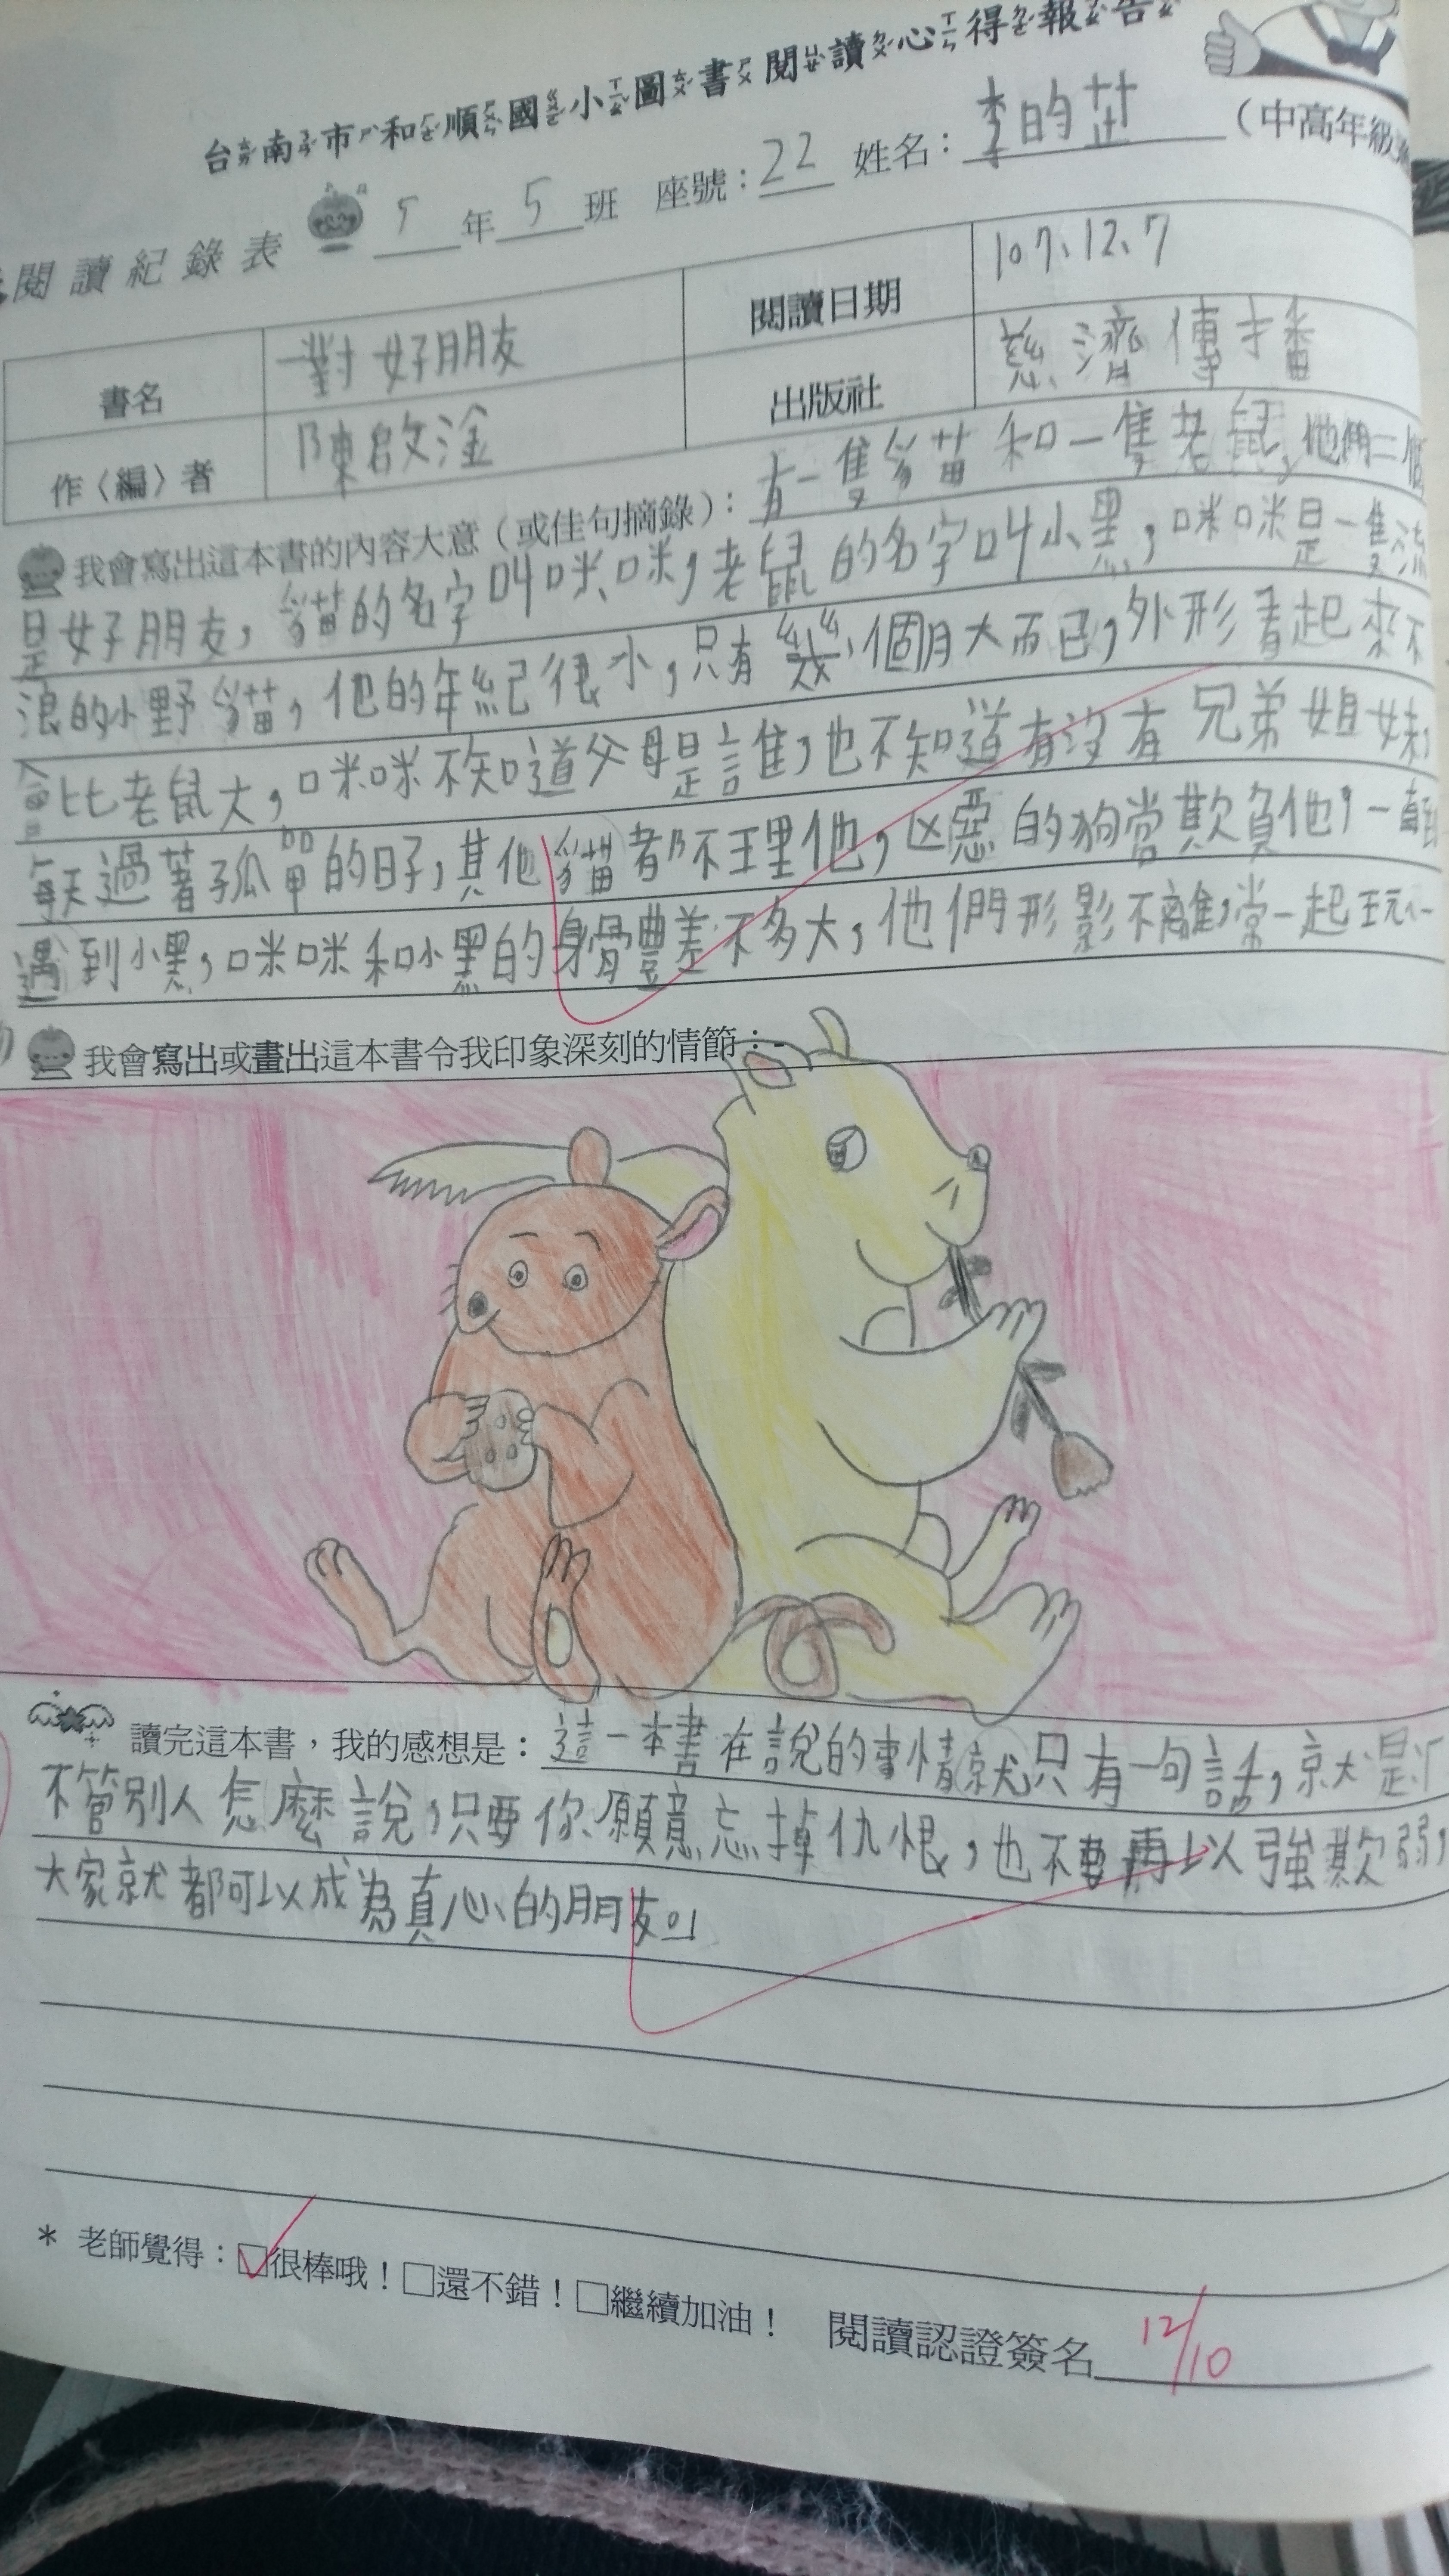 台南市和順國小圖書閱讀心得報告
閱讀紀錄表 5年5班 座號：22 姓名：李昀芷（中高年級
書名 一對好朋友 閱讀日期 107、12、7
作〈編〉者 陳啟淦 出版社 慈濟傳播
我會寫出這本書的內容大意（或佳句摘錄）：有一隻貓和一隻老鼠，他們二個
是好朋友，貓的名字叫咪咪，老鼠的名字叫小黑，咪咪是一隻流
浪的小野貓，他的年紀很小，只有幾個月大而已，外形看起來不
會比老鼠大，咪咪不知道父母是誰，也不知道有沒有兄弟姐妹，
每天過著孤單的日子，其他貓都不理他，凶惡的狗常欺負他，一直到
遇到小黑，咪咪和小黑的身體差不多大，他們形影不離，常一起玩
我會寫出或畫出這本書令我印象深刻的情節：
讀完這本書，我的感想是：這一本書在說的事情就只有一句話，就是
不管別人怎麼說，只要你願意忘掉仇恨，也不要再以強欺弱，
大家就都可以成為真心的朋友。
* 老師覺得：☑很棒哦！□還不錯！□繼續加油！ 閱讀認證簽名 12/10